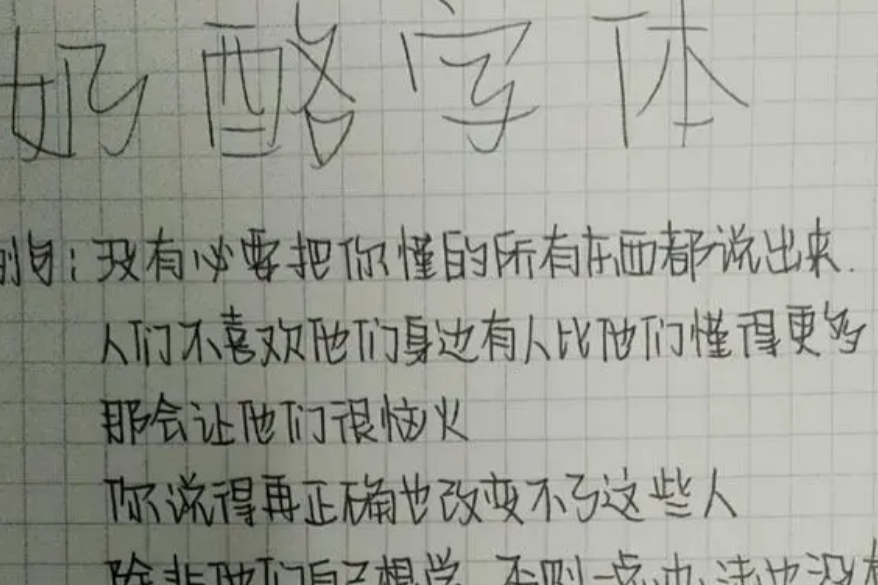 奶酪字体
例句：没有必要把你懂的所有东西都说出来.
人们不喜欢他们身边有人比他们懂得更多
那会让他们很恼火
你说得再正确也改变不了这些人
除非他们自己想学 否则一点办法也没有